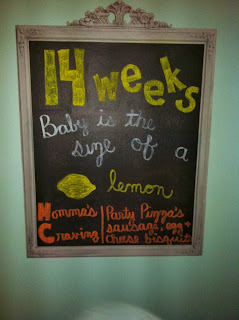 14 weeks
Baby is the
size of a
lemon
Momma's Craving | Party Pizza's
sausage, egg +
cheese bisquits